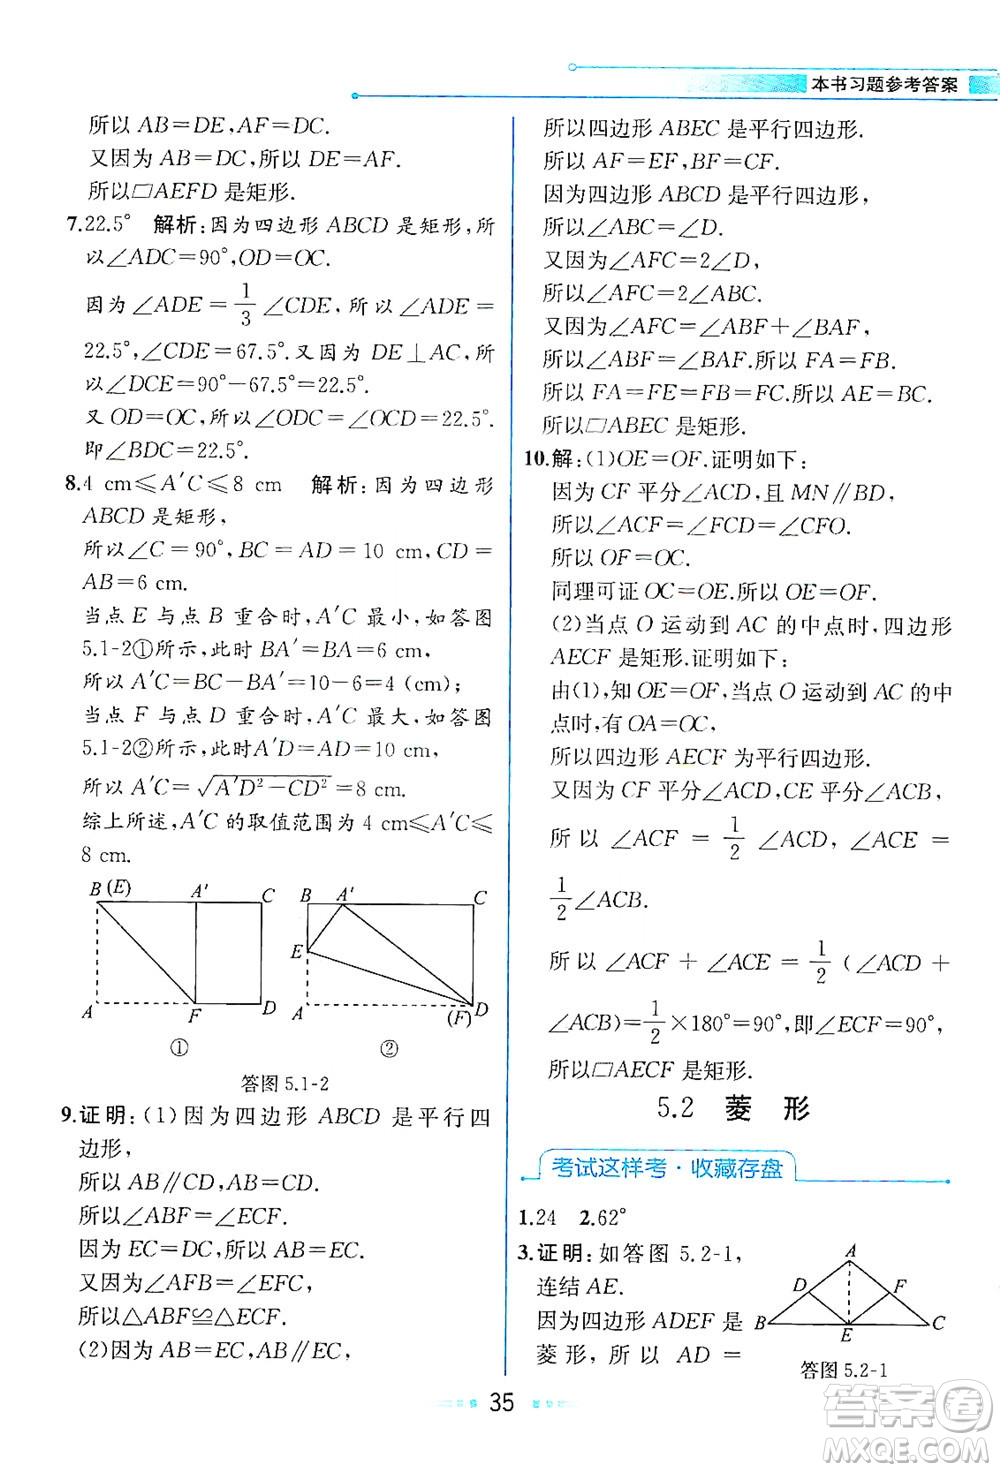 本书习题参考答案
所以 AB=DE,AF=DC.
又因为 AB=DC,所以 DE=AF.
所以□AEFD 是矩形.
7.22.5° 解析:因为四边形 ABCD 是矩形,所
以∠ADC=90°,OD=OC.
因为 ∠ADE = 1/3 ∠CDE, 所以 ∠ADE =
22.5°,∠CDE=67.5°.又因为 DE⊥AC,所
以∠DCE=90°-67.5°=22.5°.
又 OD=OC,所以∠ODC=∠OCD=22.5°.
即∠BDC=22.5°.
8.4 cm≤A′C≤8 cm 解析:因为四边形
ABCD 是矩形,
所以∠C=90°,BC=AD=10 cm,CD=
AB=6 cm.
当点 E 与点 B 重合时,A′C 最小,如答图
5.1-2①所示,此时 BA′=BA=6 cm,
所以 A′C=BC-BA′=10-6=4 (cm);
当点 F 与点 D 重合时,A′C 最大,如答图
5.1-2②所示,此时A′D=AD=10 cm,
所以 A′C=√(A′D²-CD²)=8 cm.
综上所述,A′C 的取值范围为 4 cm≤A′C≤
8 cm.
B(E) A′ C
A F D
①
B A′ C
E
A (F) D
②
答图 5.1-2
9.证明:(1)因为四边形 ABCD 是平行四
边形,
所以 AB∥CD,AB=CD.
所以∠ABF=∠ECF.
因为 EC=DC,所以 AB=EC.
又因为∠AFB=∠EFC,
所以△ABF≌△ECF.
(2)因为 AB=EC,AB∥EC,
所以四边形 ABEC 是平行四边形.
所以 AF=EF,BF=CF.
因为四边形 ABCD 是平行四边形,
所以∠ABC=∠D.
又因为∠AFC=2∠D,
所以∠AFC=2∠ABC.
又因为∠AFC=∠ABF+∠BAF,
所以∠ABF=∠BAF.所以 FA=FB.
所以 FA=FE=FB=FC.所以 AE=BC.
所以□ABEC 是矩形.
10.解:(1)OE=OF.证明如下:
因为 CF 平分∠ACD,且 MN∥BD,
所以∠ACF=∠FCD=∠CFO.
所以 OF=OC.
同理可证 OC=OE.所以 OE=OF.
(2)当点 O 运动到 AC 的中点时,四边形
AECF 是矩形.证明如下:
由(1),知 OE=OF,当点 O 运动到 AC 的中
点时,有 OA=OC,
所以四边形 AECF 为平行四边形.
又因为 CF 平分∠ACD,CE 平分∠ACB,
所以 ∠ACF = 1/2 ∠ACD, ∠ACE =
1/2∠ACB.
所以 ∠ACF + ∠ACE = 1/2 (∠ACD +
∠ACB)=1/2×180°=90°,即∠ECF=90°,
所以□AECF 是矩形.
5.2 菱 形
考试这样考·收藏存盘
1.24 2.62°
3.证明:如答图 5.2-1,
连结 AE.
因为四边形 ADEF 是
菱形,所以 AD =
A
D F
B E C
答图 5.2-1
35
答案圈
MXQE.COM